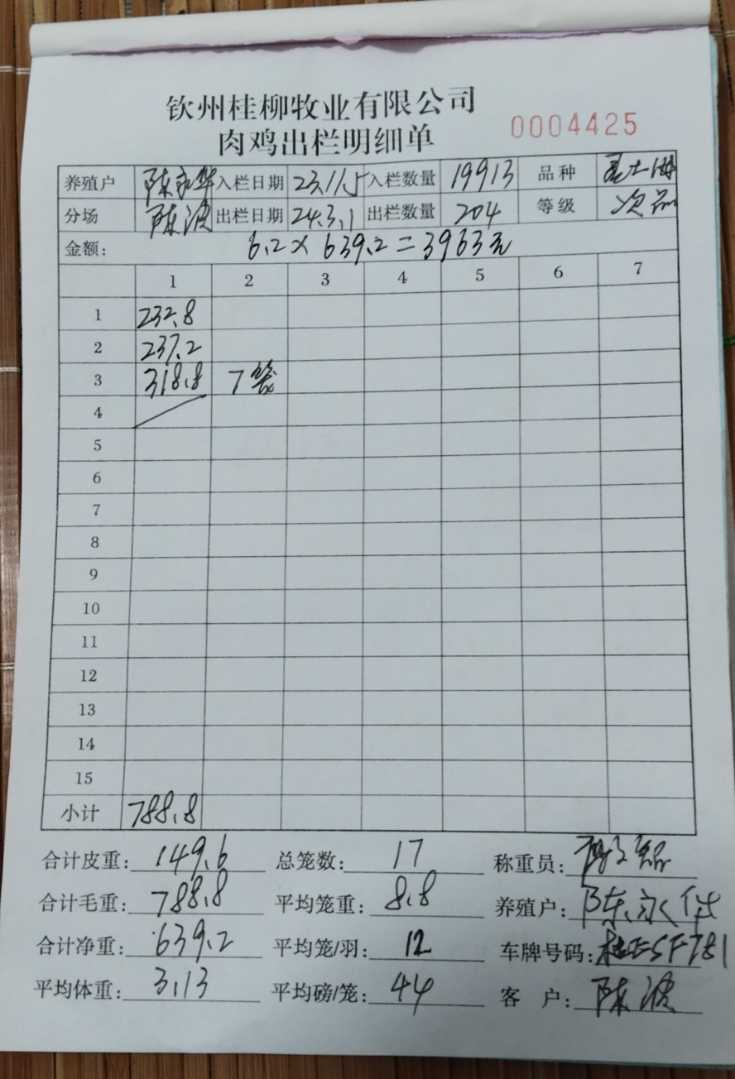 钦州桂柳牧业有限公司
肉鸡出栏明细单 0004425
养殖户 陈永华 入栏日期 23.11.5 入栏数量 19913 品种
分场 陈波 出栏日期 24.3.1 出栏数量 204 等级 次品
金额: 6.2×639.2=3963元
1 2 3 4 5 6 7
1 232.8
2 237.2
3 318.8 7笼
4
5
6
7
8
9
10
11
12
13
14
15
小计 788.8
合计皮重: 149.6 总笼数: 17 称重员:
合计毛重: 788.8 平均笼重: 8.8 养殖户: 陈永华
合计净重: 639.2 平均笼/羽: 12 车牌号码:
平均体重: 3.13 平均磅/笼: 44 客户: 陈波